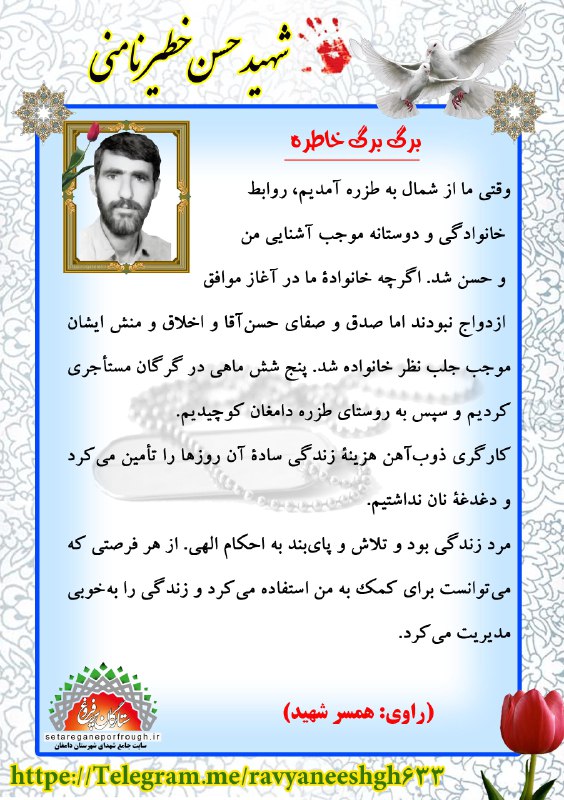 شهید حسن خطیرنامنی
برگ برگ خاطره
وقتی ما از شمال به طزره آمدیم، روابط
خانوادگی و دوستانه موجب آشنایی من
و حسن شد. اگرچه خانوادهٔ ما در آغاز موافق
ازدواج نبودند اما صدق و صفای حسن‌آقا و اخلاق و منش ایشان
موجب جلب نظر خانواده شد. پنج شش ماهی در گرگان مستأجری
کردیم و سپس به روستای طزره دامغان کوچیدیم.
کارگری ذوب‌آهن هزینهٔ زندگی سادهٔ آن روزها را تأمین می‌کرد
و دغدغهٔ نان نداشتیم.
مرد زندگی بود و تلاش و پای‌بند به احکام الهی. از هر فرصتی که
می‌توانست برای کمک به من استفاده می‌کرد و زندگی را به‌خوبی
مدیریت می‌کرد.
(راوی: همسر شهید)
ستارگان پرفروغ
setareganeporfrough.ir
سایت جامع شهدای شهرستان دامغان
https://Telegram.me/ravyaneeshgh۶۳۳